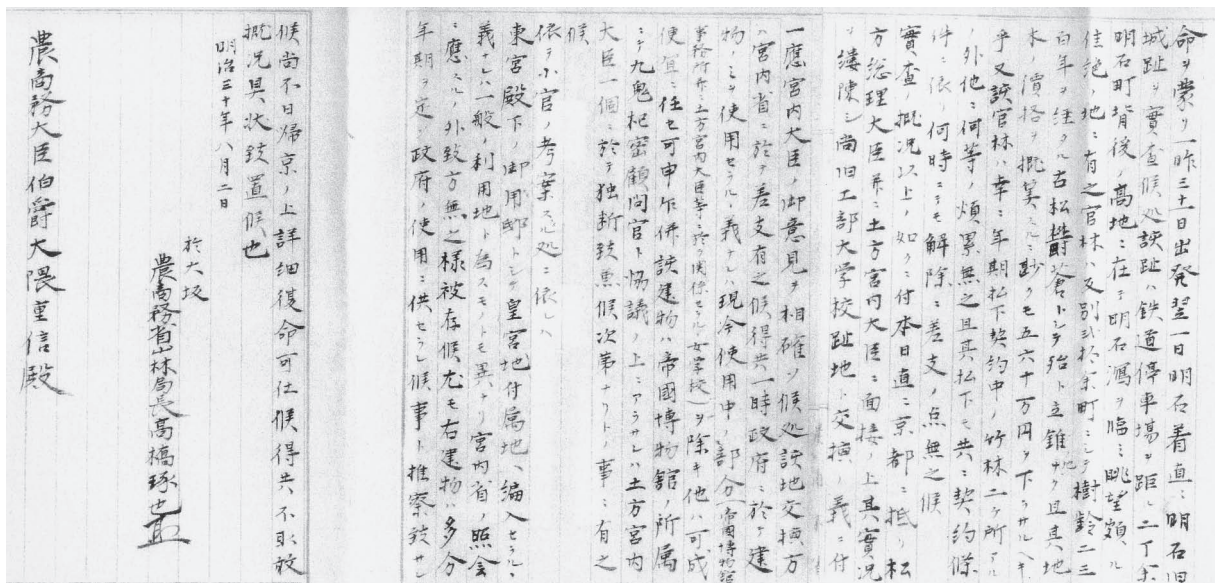 命ヲ蒙リ一昨三十一日出発翌一日明石着直ニ明石旧
城趾ヲ實査候処該趾ハ鉄道停車場ヲ距ル二丁余
明石町背後ノ高地ニ在テ明石潟ヲ臨ミ眺望頗ル
佳絶ノ地ニ有之官林ハ反別弐拾余町ニシテ樹齢二三
百年ヲ経タル古松欝蒼トシテ殆ト立錐ノ地ナク且其地
木ノ價格ヲ概算スルニ尠クモ五六十万円ヲ下ラサルヘキ
乎又該官林ハ幸ニ年期払下契約中ノ竹林二ケ所アル
ノ外他ニ何等ノ煩累無之且其払下モ共ニ契約條
件ニ依リ何時ニテモ解除ニ差支ノ点無之候
實査ノ概况以上ノ如クニ付本日直ニ京都ニ抵リ松
方総理大臣并ニ土方宮内大臣ニ面接ノ上其實況
ヲ縷陳シ尚旧工部大学校趾地ト交換ノ義ニ付
一應宮内大臣ノ御意見ヲ相確メ候処該地交換方
ハ宮内省ニ於テ差支有之候得共一時政府ニ於テ建
物ノミヲ使用セラルヽ義ナレハ現今使用中ノ部分(帝國博物館
事務所并ニ土方宮内大臣等ニ於テ関係セラルヽ女学校)ヲ除キ他ハ可成
便宜ニ任セ可申乍併該建物ハ帝國博物館ノ所属
ニテ九鬼枢密顧問官ト協議ノ上ニアラサレハ土方宮内
大臣一個ニ於テ独断致兼候次第ナリトノ事ニ有之
候
依テ小官ノ考案スル処ニ依レハ
東宮殿下ノ御用邸トシテ皇宮地付属地ヘ編入セラルヽ
義ナレハ一般ノ利用地ト為スモノトモ異ナリ宮内省ノ照会
ニ應スルノ外致方無之様被存候尤モ右建物ハ多分
年期ヲ定メ政府ノ使用ニ供セラレ候事ト推察致サレ
候尚不日帰京ノ上詳細復命可仕候得共不取敢
概况具状致置候也
明治三十年八月二日
於大坂
農商務省山林局長高橋琢也
農商務大臣伯爵大隈重信殿